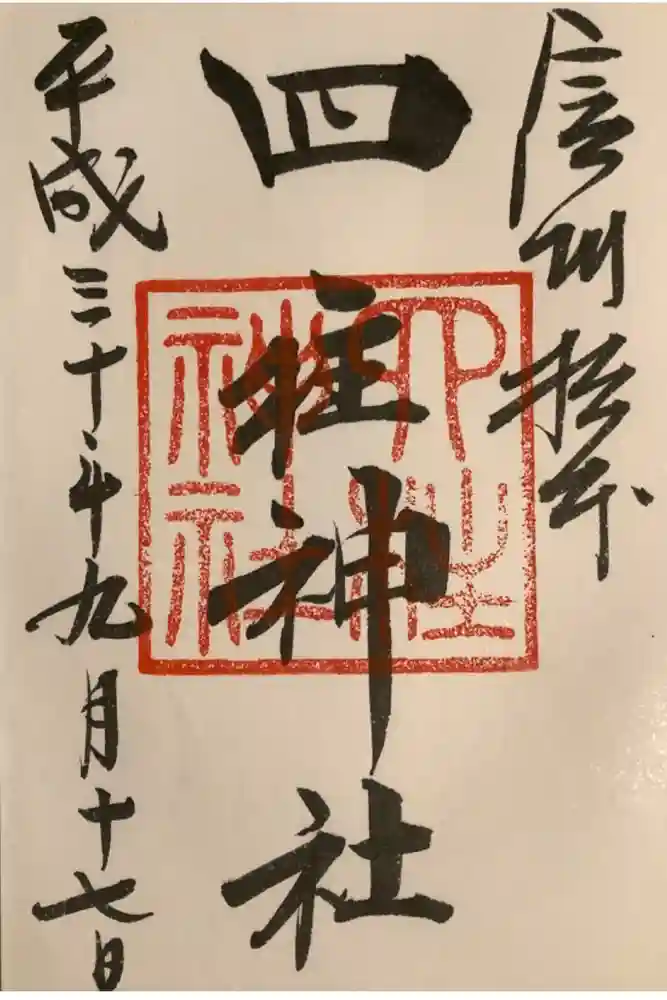 信州松本
四柱神社
平成三十年九月十七日
四柱
神社